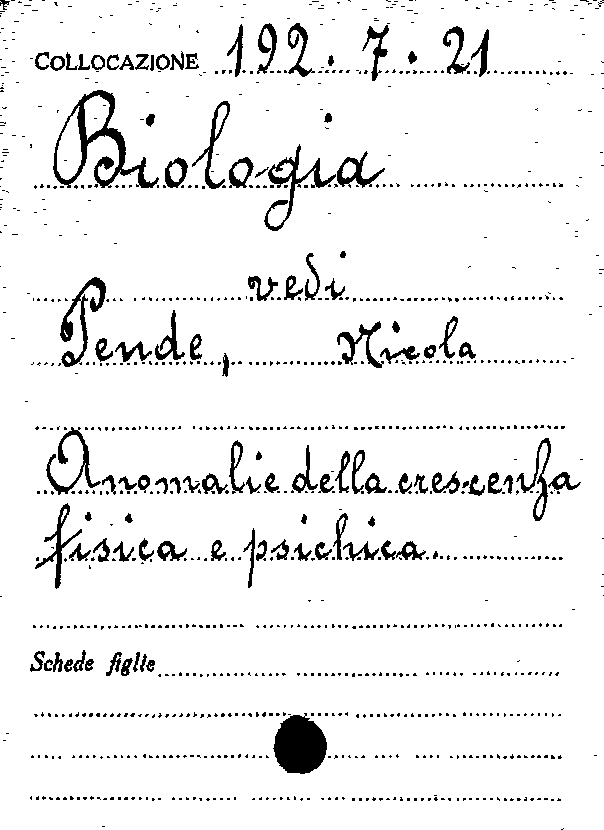 COLLOCAZIONE 192. 7. 21
Biologia
vedi
Pende, Nicola
Anomalie della crescenza
fisica e psichica.
Schede figlie